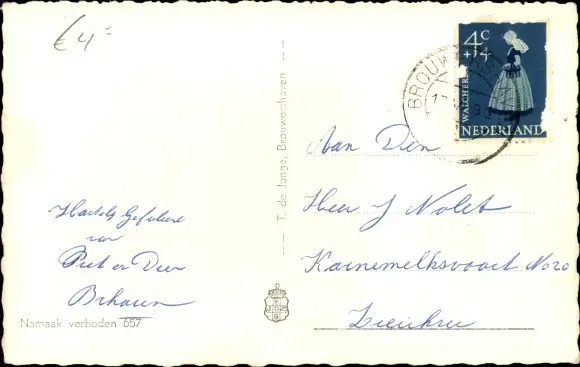 € 4-
4c
+4
WALCHEREN
NEDERLAND
BROUW
T. de Jonge, Brouwershaven
Aan Den
Heer J Nolet
Karnemelksvaart No 20
Zierikzee
Hartelijk Gefeliciteerd
van
Piet en
Bihaven
Namaak verboden 657